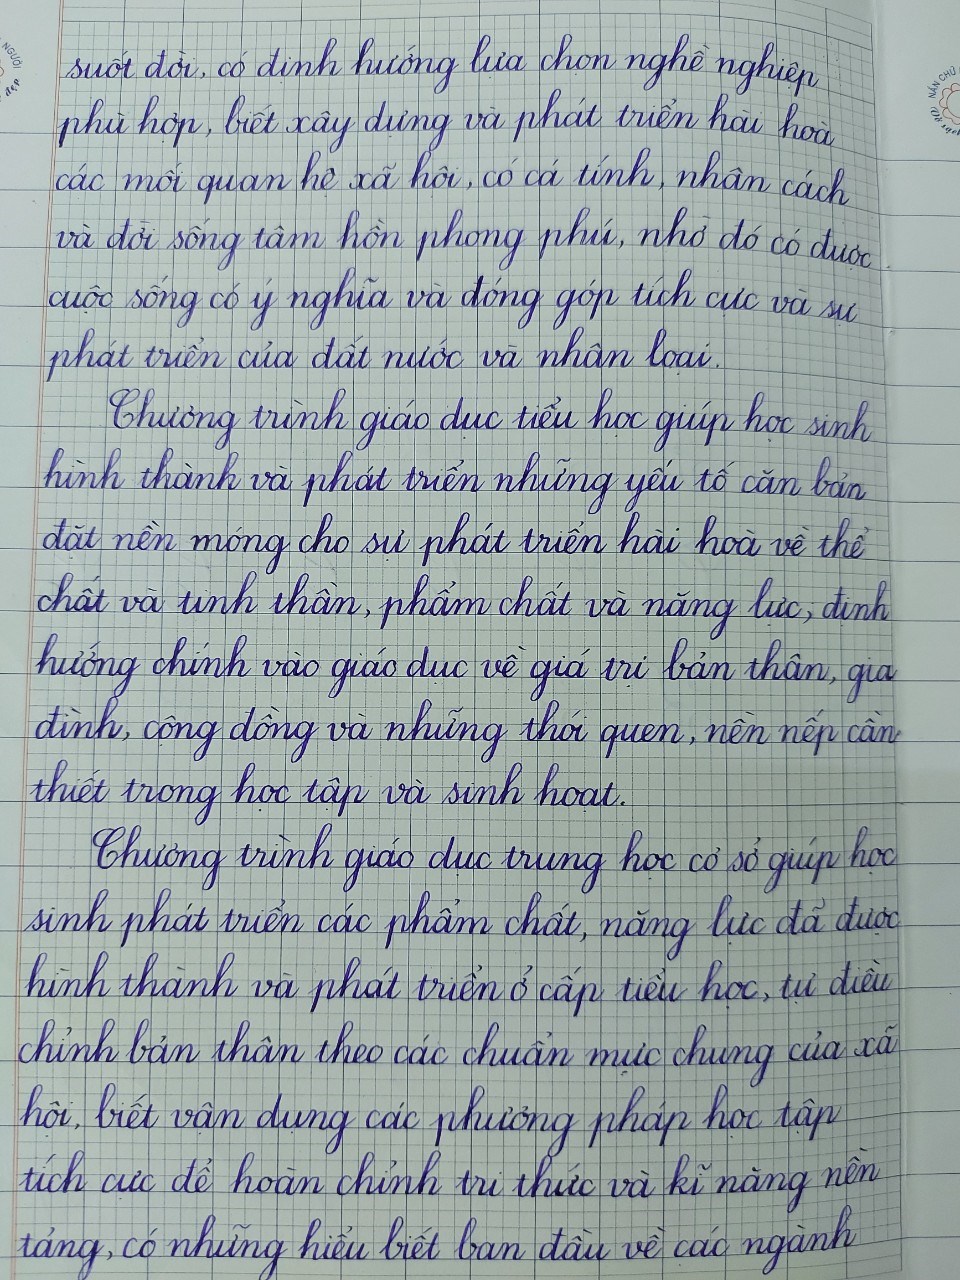 suốt đời, có định hướng lựa chọn nghề nghiệp
phù hợp, biết xây dựng và phát triển hài hoà
các mối quan hệ xã hội, có cá tính, nhân cách
và đời sống tâm hồn phong phú, nhờ đó có được
cuộc sống có ý nghĩa và đóng góp tích cực và sự
phát triển của đất nước và nhân loại.
Chương trình giáo dục tiểu học giúp học sinh
hình thành và phát triển những yếu tố căn bản
đặt nền móng cho sự phát triển hài hoà về thể
chất và tinh thần, phẩm chất và năng lực, định
hướng chính vào giáo dục về giá trị bản thân, gia
đình, cộng đồng và những thói quen, nền nếp cần
thiết trong học tập và sinh hoạt.
Chương trình giáo dục trung học cơ sở giúp học
sinh phát triển các phẩm chất, năng lực đã được
hình thành và phát triển ở cấp tiểu học, tự điều
chỉnh bản thân theo các chuẩn mực chung của xã
hội, biết vận dụng các phương pháp học tập
tích cực để hoàn chỉnh tri thức và kĩ năng nền
tảng, có những hiểu biết ban đầu về các ngành
NGƯỜI
đẹp
NẮN CHỮ